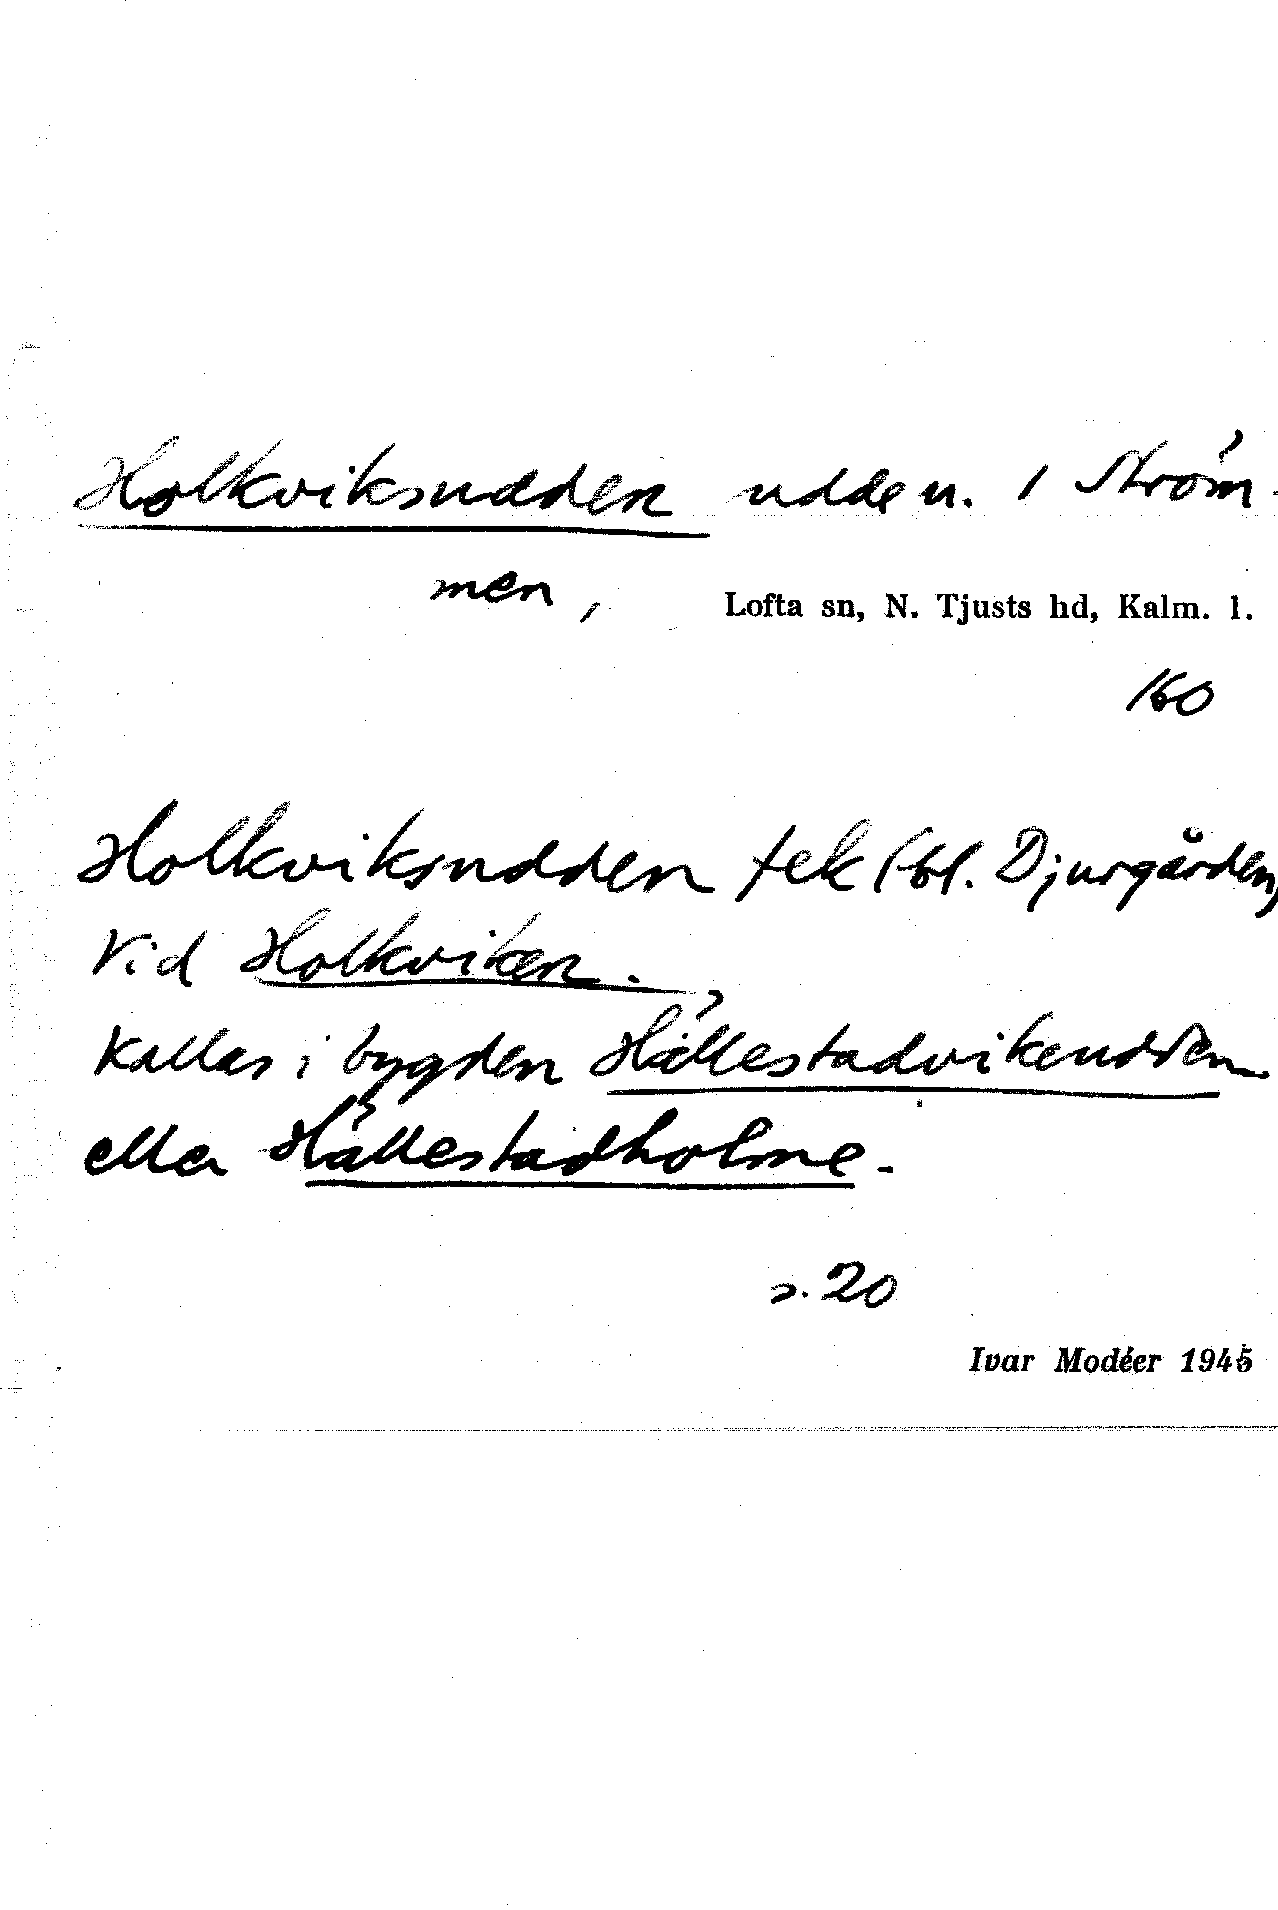 Holkviksudden udde n. i Ström-
men,
Lofta sn, N. Tjusts hd, Kalm. l.
160
Holkviksudden tek (bl. Djurgården,
Vid Holkviken.
Kallas i bygden Hällestadvikeudden
eller Hällestadholme.
s. 20
Ivar Modéer 1945